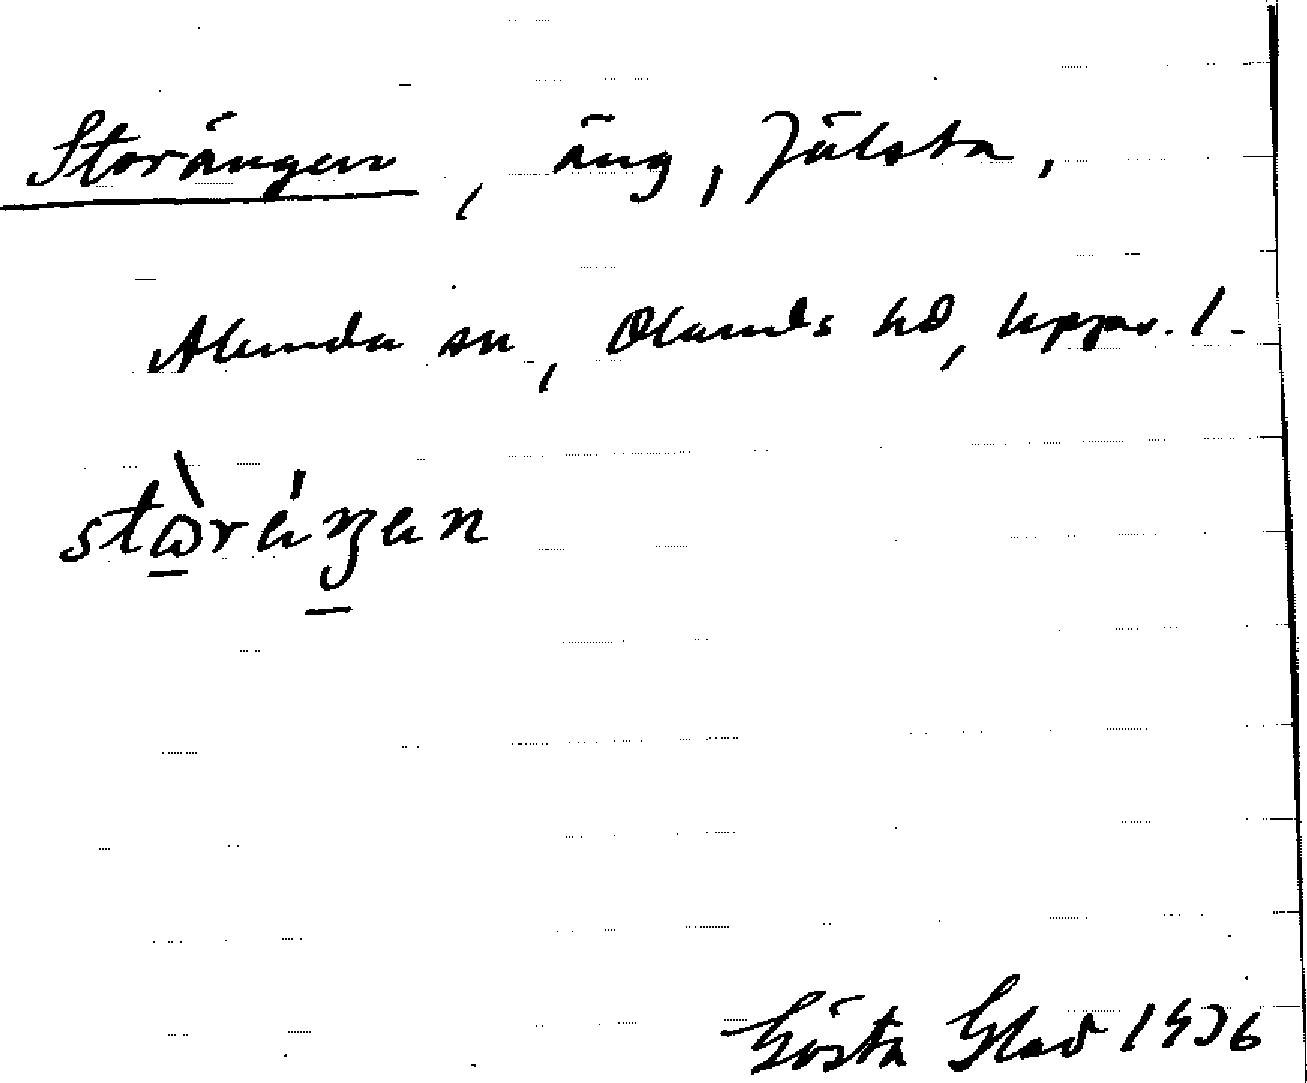 Storängen, äng, Jälsta,
Alunda sn, Olands hd, Upps. l.
Gösta Glad 1936